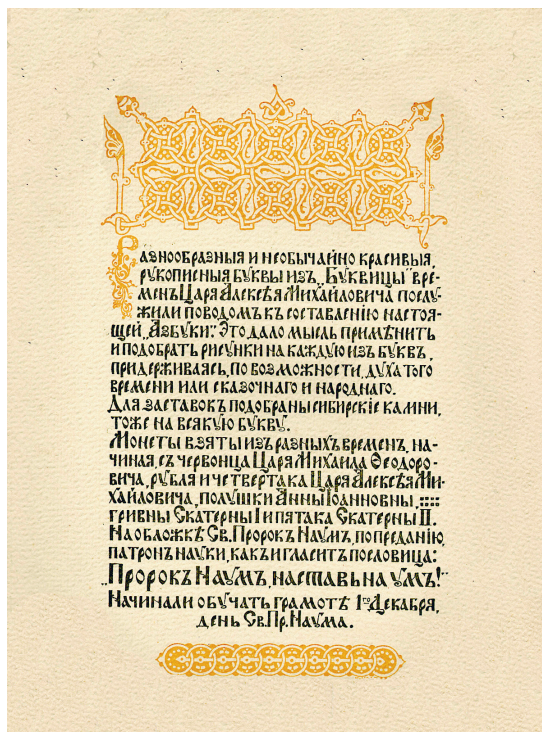 Разнообразныя и необычайно красивыя,
рукописныя буквы изъ „Буквицы" вре-
менъ Царя Алексѣя Михайловича послу-
жили поводомъ къ составленію настоя-
щей „Азбуки". Это дало мысль примѣнить
и подобрать рисунки на каждую изъ буквъ,
придерживаясь, по возможности, духа того
времени или сказочнаго и народнаго.
Для заставокъ подобраны сибирскіе камни,
тоже на всякую букву.
Монеты взяты изъ разныхъ временъ, на-
чиная, съ червонца Царя Михаила Ѳеодоро-
вича, рубля и четвертака Царя Алексѣя Ми-
хайловича, полушки Анны Іоанновны,::::
гривны Екатерны I и пятака Екатерны II.
На обложкѣ Св. Пророкъ Наумъ, по преданію,
патронъ науки, какъ и гласитъ пословица:
„Пророкъ Наумъ, наставь на умъ!"
Начинали обучать грамотѣ 1го Декабря,
день Св. Пр. Наума.